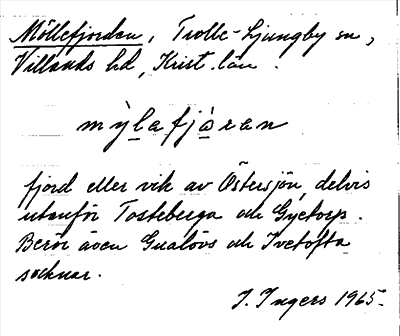 Möllefjorden, Trolle-Ljungby sn,
Villands hd, Krist. län.
mỳlafjàran
fjord eller vik av Östersjön, delvis
utanför Tosteberga och Gyetorp.
Berör även Gualövs och Ivetofta
socknar.
I. Ingers 1965.